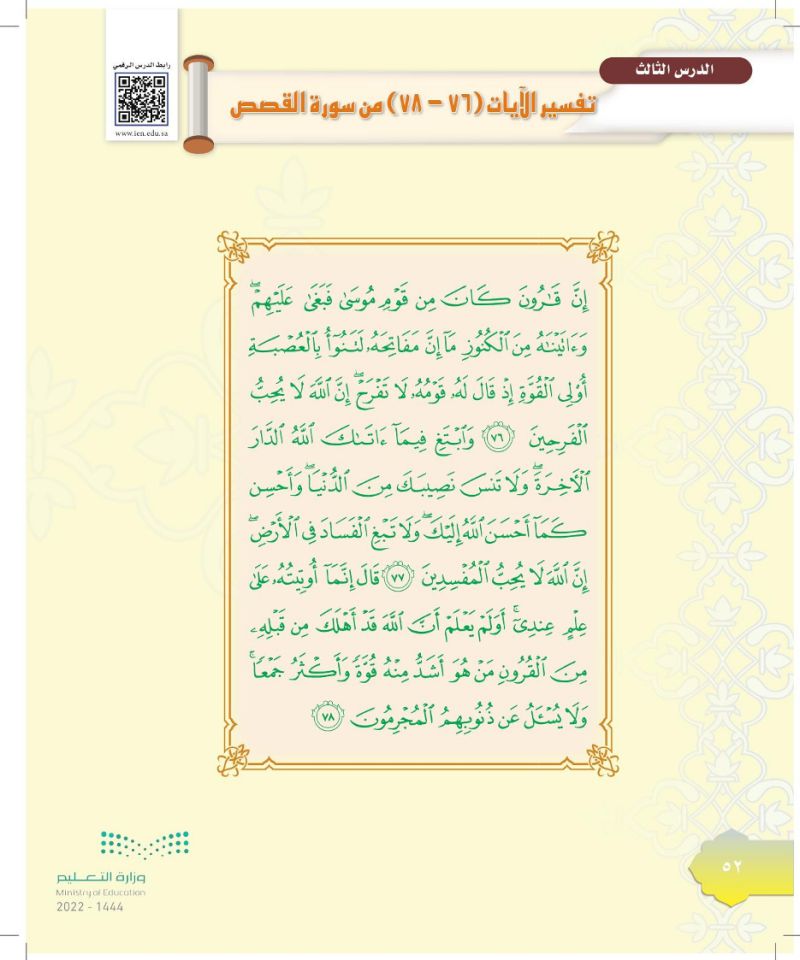 رابط الدرس الرقمي
www.ien.edu.sa
الدرس الثالث
تفسير الآيات (٧٦ – ٧٨) من سورة القصص
إِنَّ قَٰرُونَ كَانَ مِن قَوْمِ مُوسَىٰ فَبَغَىٰ عَلَيْهِمْۖ
وَءَاتَيْنَٰهُ مِنَ ٱلْكُنُوزِ مَآ إِنَّ مَفَاتِحَهُۥ لَتَنُوٓأُ بِٱلْعُصْبَةِ
أُو۟لِى ٱلْقُوَّةِ إِذْ قَالَ لَهُۥ قَوْمُهُۥ لَا تَفْرَحْۖ إِنَّ ٱللَّهَ لَا يُحِبُّ
ٱلْفَرِحِينَ ٧٦ وَٱبْتَغِ فِيمَآ ءَاتَىٰكَ ٱللَّهُ ٱلدَّارَ
ٱلْءَاخِرَةَۖ وَلَا تَنسَ نَصِيبَكَ مِنَ ٱلدُّنْيَاۖ وَأَحْسِن
كَمَآ أَحْسَنَ ٱللَّهُ إِلَيْكَۖ وَلَا تَبْغِ ٱلْفَسَادَ فِى ٱلْأَرْضِۖ
إِنَّ ٱللَّهَ لَا يُحِبُّ ٱلْمُفْسِدِينَ ٧٧ قَالَ إِنَّمَآ أُوتِيتُهُۥ عَلَىٰ
عِلْمٍ عِندِىٓۚ أَوَلَمْ يَعْلَمْ أَنَّ ٱللَّهَ قَدْ أَهْلَكَ مِن قَبْلِهِۦ
مِنَ ٱلْقُرُونِ مَنْ هُوَ أَشَدُّ مِنْهُ قُوَّةً وَأَكْثَرُ جَمْعًاۚ
وَلَا يُسْـَٔلُ عَن ذُنُوبِهِمُ ٱلْمُجْرِمُونَ ٧٨
٥٢
وزارة التعليم
Ministry of Education
2022 - 1444